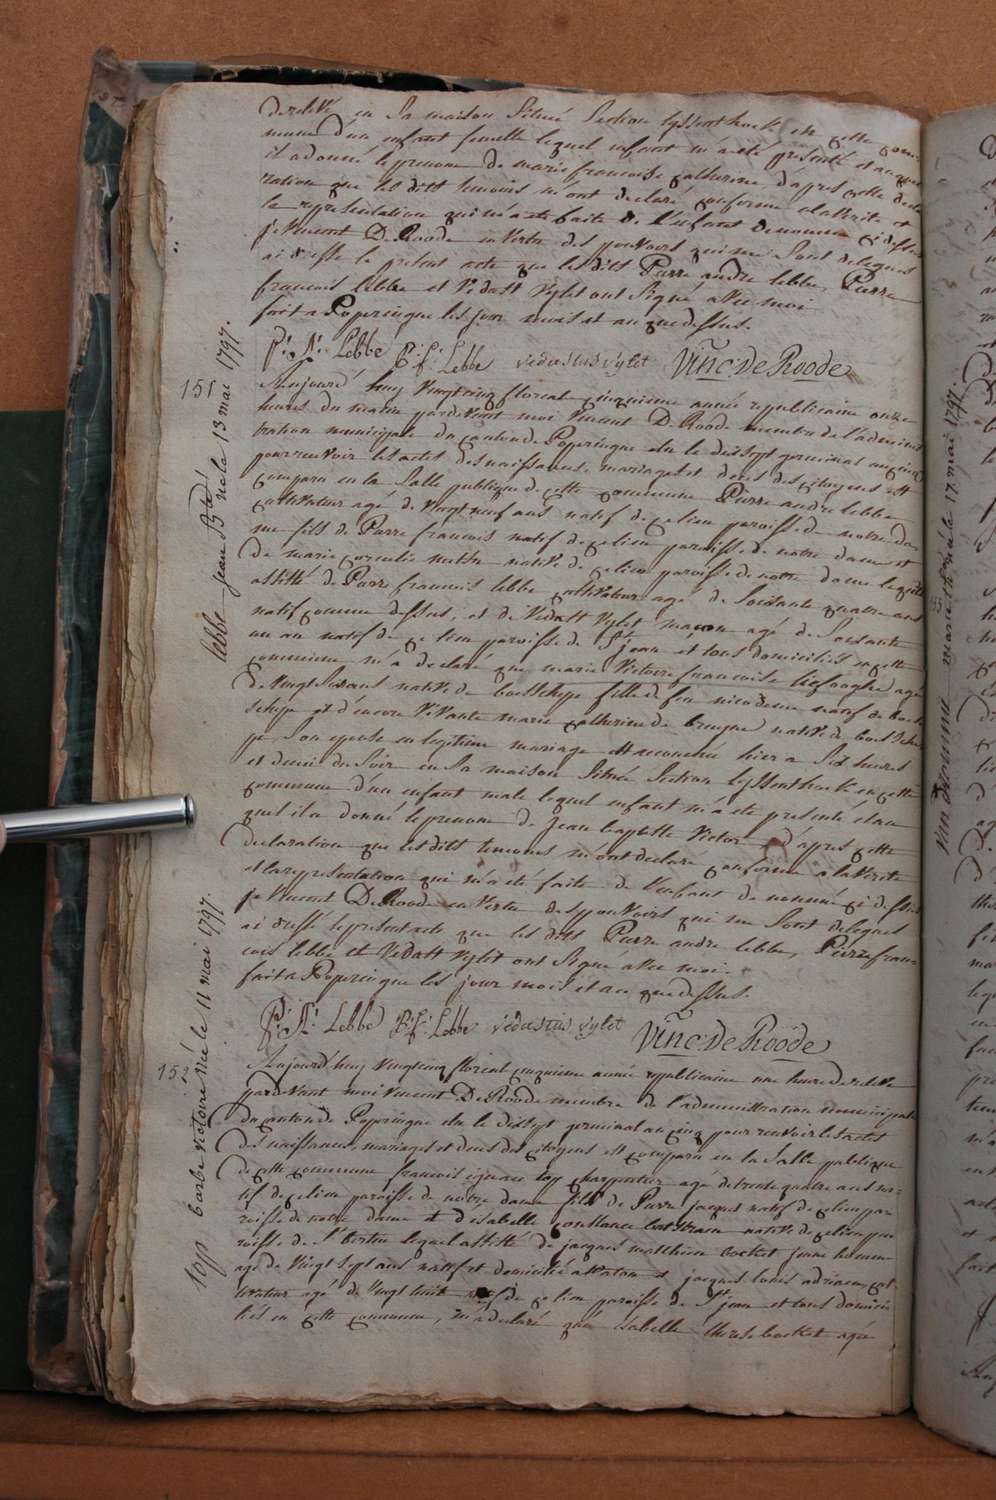 de relevé en sa maison située section lyssenthoek en cette com-
mune d'un enfant femelle lequel enfant m'a été présenté et auquel
il a donné le prenom de marie francoise catherine, d'apres cette decla-
ration que les dits temoins m'ont declaré conforme a la verité et
la representation qui m'a été faite de l'enfant denommé ci dessus
je Vincent De Roode en vertu des pouvoirs qui me sont delegués
ai dressé le présent acte que les dits Pierre andre lebbe, Pierre
francois lebbe et Vedast Vylet ont signé avec moi
fait a Poperingue les jour mois et an que dessus.
P:r A: Lebbe P:f: Lebbe vedastus vylet Vinc: De Roode
151
lebbe jean B:te né le 13 mai 1797.
Aujourd'huy vingt cinq floreal cinquieme année republicaine onze
heures du matin pardevant moi Vincent De Roode membre de l'adminis-
tration municipale du canton de Poperingue elu le dixsept germinal an cinq
pour recevoir les actes des naissances, mariages et deces des citoyens est
comparu en la salle publique de cette commune Pierre andre lebbe
cultivateur agé de vingt neuf ans natif de ce lieu paroisse de notre da-
me fils de Pierre francois natif de ce lieu paroisse de notre dame et
de marie native de ce lieu paroisse de notre dame lequel
assisté de Pierre francois lebbe cultivateur agé de soixante quatre ans
natif comme dessus, et de Vedast Vylet maçon agé de soixante
un an natif de ce lieu paroisse de St jean et tous domiciliés en cette
commune m'a declaré que marie Victoire francoise liefooghe agée
de vingt six ans native de boesschepe fille de feu nicodeme natif de boes-
schepe et d'encore vivante marie catherine de bruyne native de boessche-
pe son epouse en legitime mariage est accouchée hier a six heures
et demi du soir en sa maison située section lyssenthoek en cette
commune d'un enfant male lequel enfant m'a été présenté et au-
quel il a donné le prenom de Jean baptiste Victor d'apres cette
declaration que les dits temoins m'ont declaré conforme a la verité
et la representation qui m'a été faite de l'enfant denommé ci dessus
je Vincent De Roode en vertu des pouvoirs qui me sont delegués
ai dressé le present acte que les dits Pierre andre lebbe, Pierre fran-
cois lebbe et Vedast Vylet ont signé avec moi.
fait a Poperingue les jour mois et an que dessus.
P:r A: Lebbe P:f: Lebbe vedastus vylet Vinc: De Roode
152
top barbe victoire née le 11 mai 1797
Aujourd'huy vingt cinq floreal cinquieme année republicaine une heure de relevé
pardevant moi Vincent De Roode membre de l'administration municipale
du canton de Poperingue elu le dixsept germinal an cinq pour recevoir les actes
des naissances, mariages et deces des citoyens est comparu en la salle publique
de cette commune francois ignace top charpentier agé de trente quatre ans na-
tif de ce lieu paroisse de notre dame fils de Pierre jacques natif de ce lieu pa-
roisse de notre dame et d'isabelle constance native de ce lieu pa-
roisse de St bertin lequel assisté de jacques matthieu bocket jeune homme
agé de vingt sept ans natif et domicilié a et jacques louis adriaen cul-
tivateur agé de vingt huit natif de ce lieu paroisse de St jean et tous domici-
liés en cette commune, m'a declaré que isabelle therese bocket agée
marie née le 17 mai 1797.